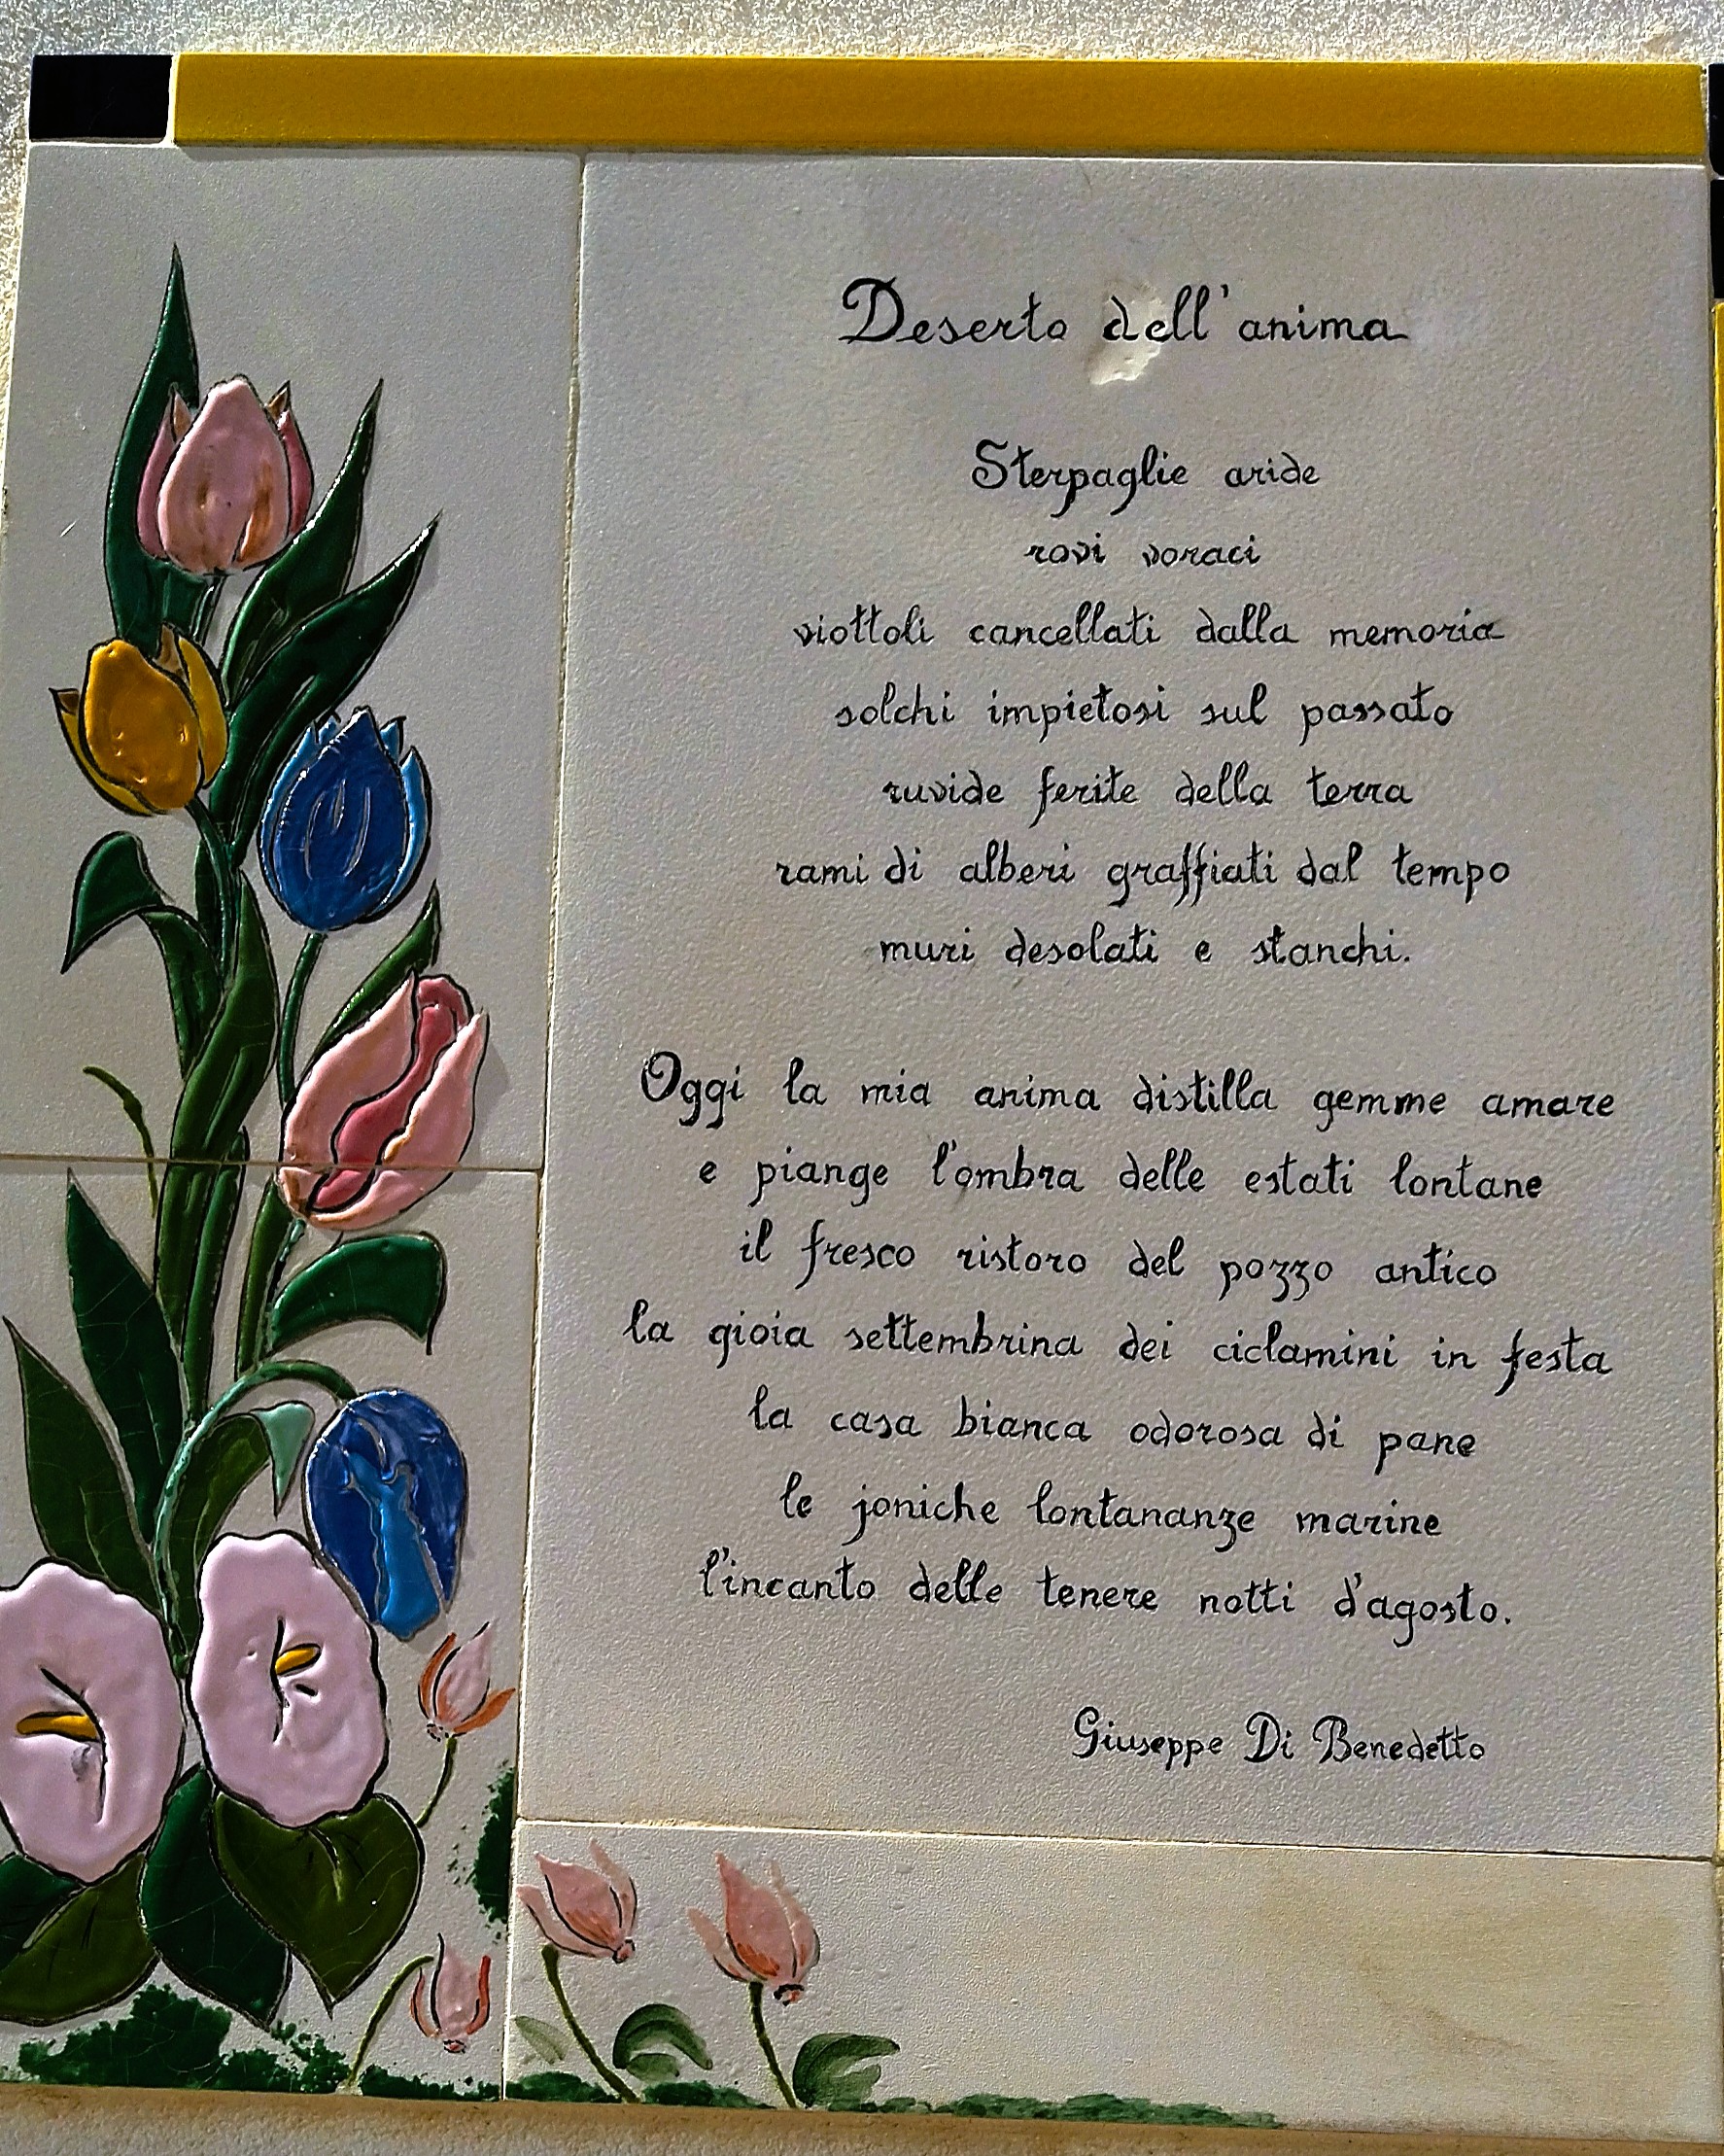 Deserto dell'anima
Sterpaglie aride
rovi voraci
viottoli cancellati dalla memoria
solchi impietosi sul passato
ruvide ferite della terra
rami di alberi graffiati dal tempo
muri desolati e stanchi.
Oggi la mia anima distilla gemme amare
e piange l'ombra delle estati lontane
il fresco ristoro del pozzo antico
la gioia settembrina dei ciclamini in festa
la casa bianca odorosa di pane
le joniche lontananze marine
l'incanto delle tenere notti d'agosto.
Giuseppe Di Benedetto